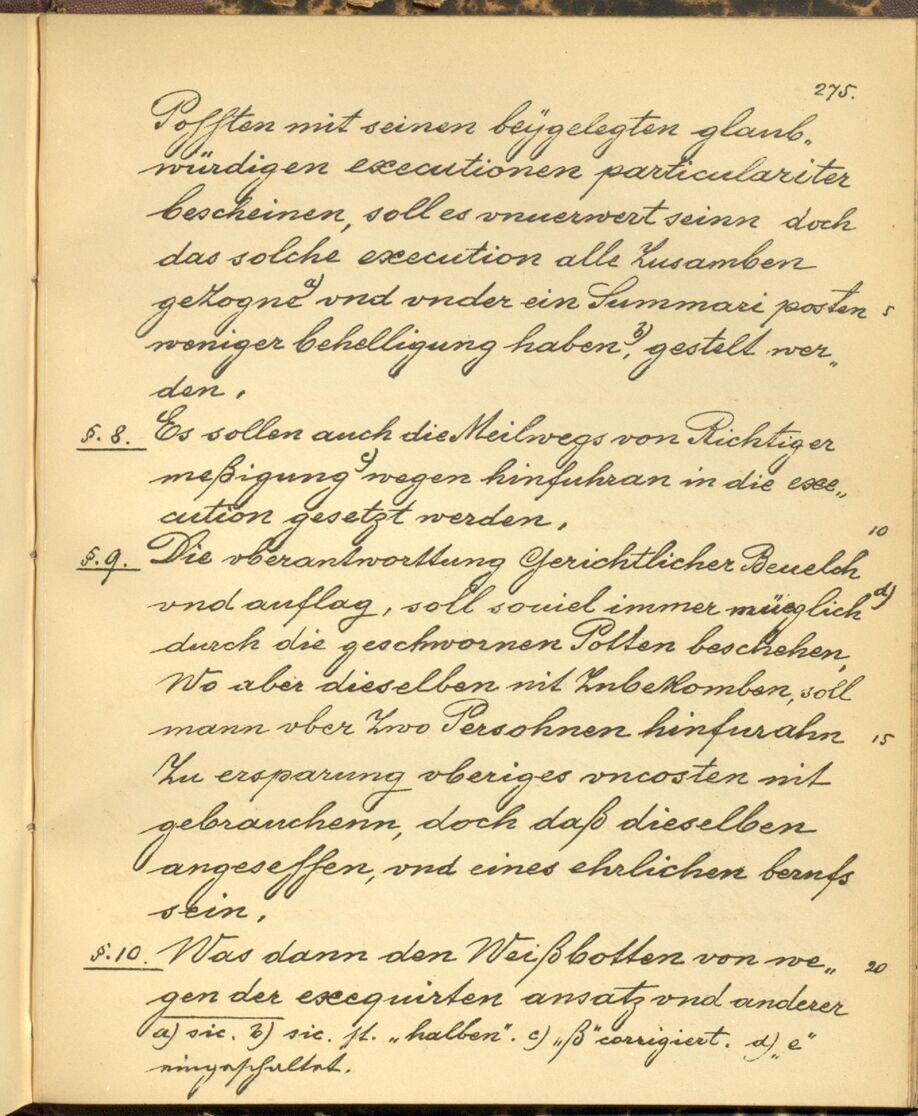 275.
Posften mit seinen beÿgelegten glaub„
würdigen executionen particulariter
bescheinen, soll es vnuerwert seinn doch
das solche execution alle Zusamben
geZogne a) vnd vnder ein Summari posten 5
weniger behelligung haben b), gestelt wer„
den.
§. 8. Es sollen auch die Meilwegs von Richtiger
meßigung c) wegen hinfuhran in die exe„
cution gesetzt werden.
10
§. 9. Die vberantworttung Gerichtlicher Beuelch
vnd auflag, soll souiel immer müeglich d)
durch die geschwornen Potten beschehen,
Wo aber dieselben nit Zubekomben, soll
mann vber Zwo Persohnen hinfurahn 15
Zu ersparung vberiges vncosten nit
gebrauchenn, doch daß dieselben
angesessen, vnd eines ehrlichen berufs
sein.
§. 10. Was dann den Weißbotten von we„ 20
gen der exequirten ansatz vnd anderer
a) sic. b) sic. st. „halben". c) „ß" corrigiert. d) „e"
eingeschaltet.